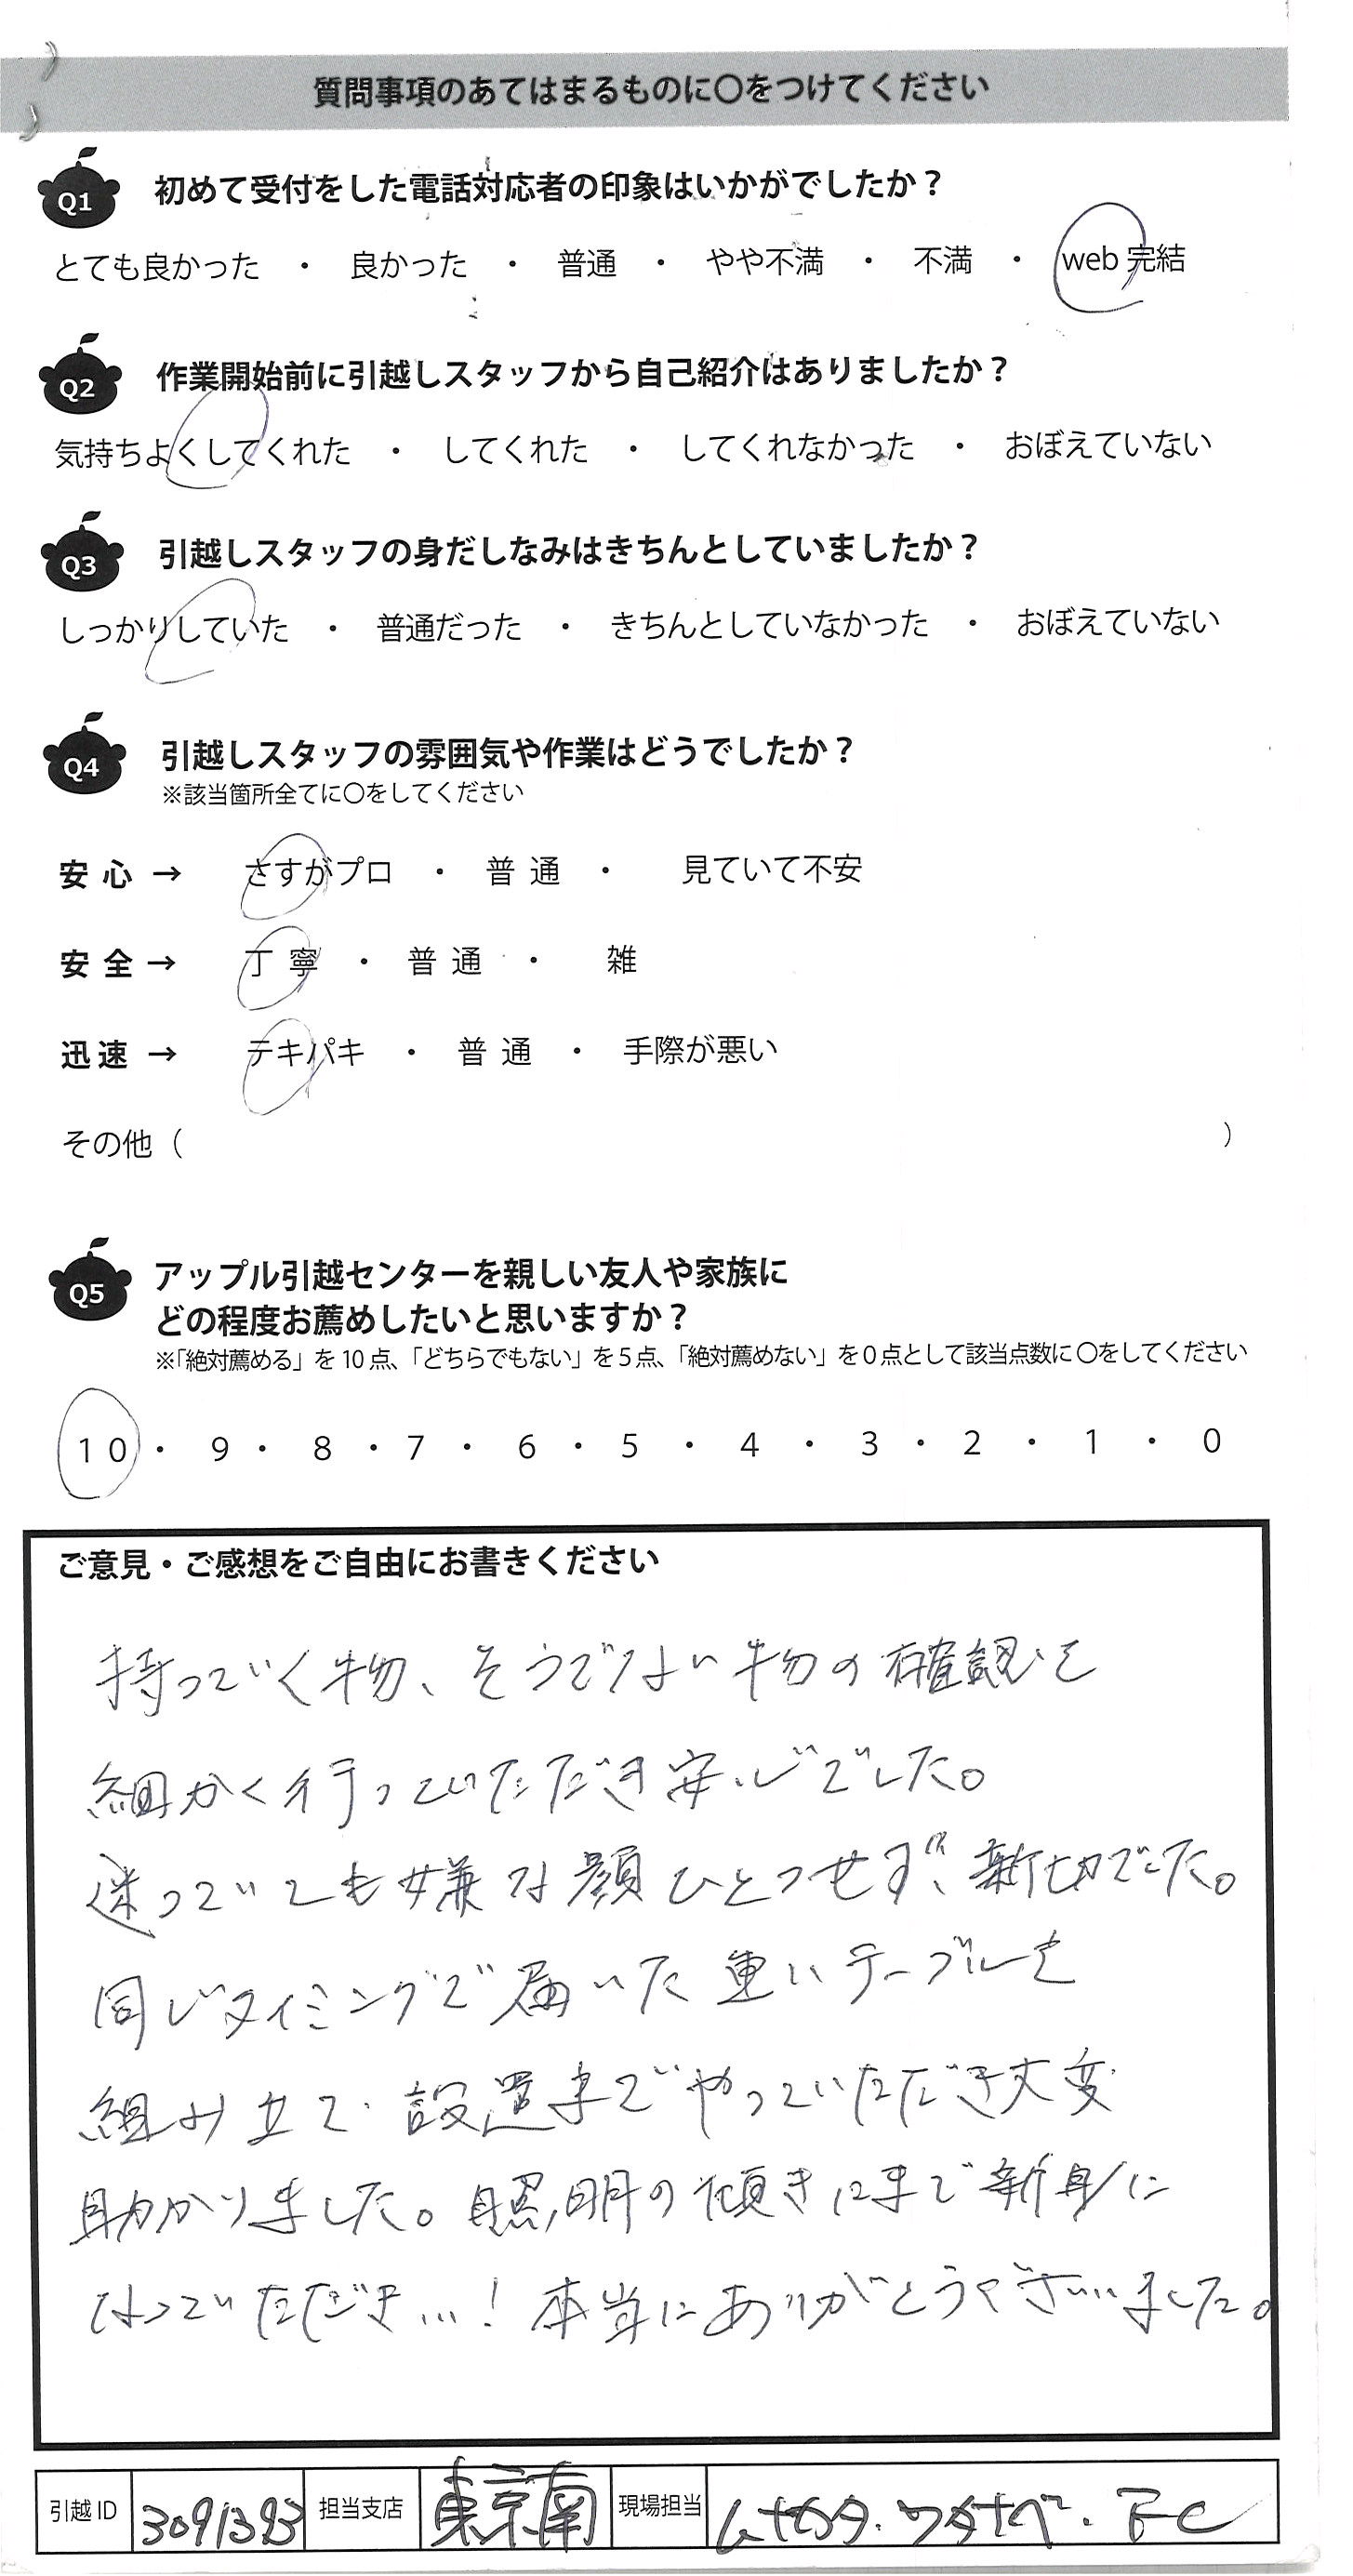 質問事項のあてはまるものに〇をつけてください
Q1 初めて受付をした電話対応者の印象はいかがでしたか？
とても良かった ・ 良かった ・ 普通 ・ やや不満 ・ 不満 ・ web 完結
Q2 作業開始前に引越しスタッフから自己紹介はありましたか？
気持ちよくしてくれた ・ してくれた ・ してくれなかった ・ おぼえていない
Q3 引越しスタッフの身だしなみはきちんとしていましたか？
しっかりしていた ・ 普通だった ・ きちんとしていなかった ・ おぼえていない
Q4 引越しスタッフの雰囲気や作業はどうでしたか？
※該当箇所全てに〇をしてください
安心 → さすがプロ ・ 普通 ・ 見ていて不安
安全 → 丁寧 ・ 普通 ・ 雑
迅速 → テキパキ ・ 普通 ・ 手際が悪い
その他（ ）
Q5 アップル引越センターを親しい友人や家族に
どの程度お薦めしたいと思いますか？
※「絶対薦める」を10点、「どちらでもない」を5点、「絶対薦めない」を0点として該当点数に〇をしてください
10 ・ 9 ・ 8 ・ 7 ・ 6 ・ 5 ・ 4 ・ 3 ・ 2 ・ 1 ・ 0
ご意見・ご感想をご自由にお書きください
持っていく物、そうでない物の確認を
細かく行っていただき安心でした。
迷っていても嫌な顔ひとつせず、親切でした。
同じタイミングで届いた重いテーブルを
組み立て・設置までやっていただき大変
助かりました。照明の傾きにまで親身に
なっていただき…！本当にありがとうございました。
引越ID 3091393 担当支店 東京南 現場担当 ムナカタ・ワタナベ・